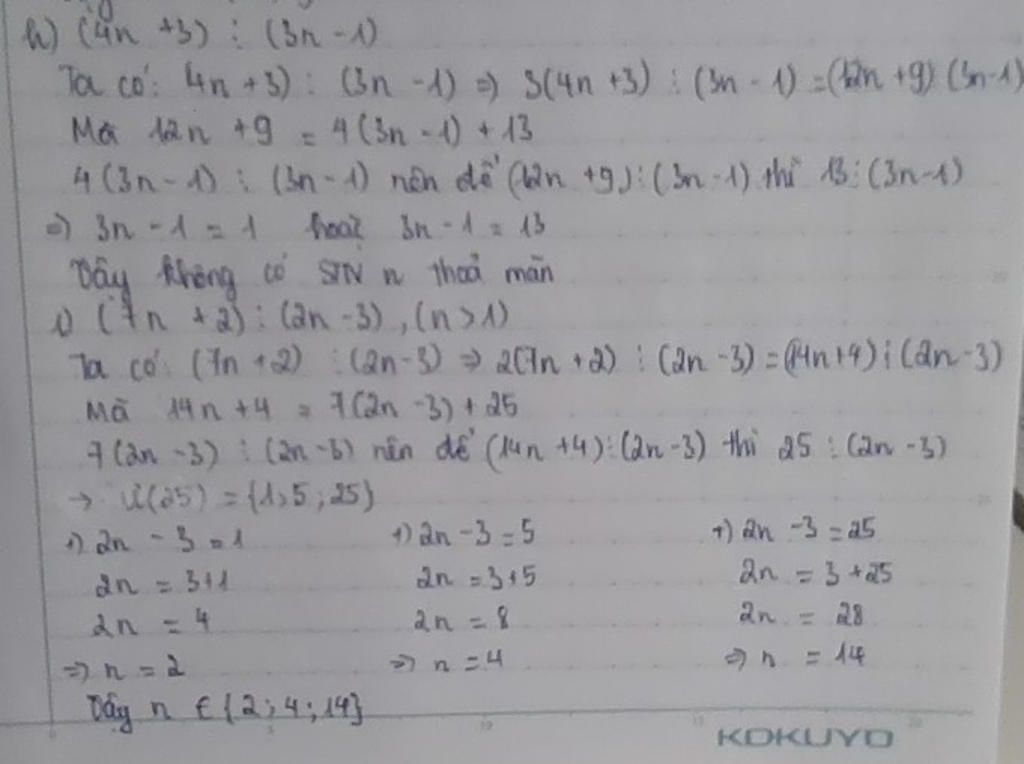 h) (4n +3) ⋮ (3n - 1)
Ta có: (4n + 3) ⋮ (3n - 1) ⇒ 3(4n + 3) ⋮ (3n - 1) = (12n + 9) (3n - 1)
Mà 12n + 9 = 4(3n - 1) + 13
4(3n - 1) ⋮ (3n - 1) nên để (12n + 9) ⋮ (3n - 1) thì 13 ⋮ (3n - 1)
⇒) 3n - 1 = 1 hoặc 3n - 1 = 13
Vậy không có STN n thoả mãn
i) (7n + 2) ⋮ (2n - 3), (n > 1)
Ta có: (7n + 2) ⋮ (2n - 3) ⇒ 2(7n + 2) ⋮ (2n - 3) = (14n + 4) ⋮ (2n - 3)
Mà 14n + 4 = 7(2n - 3) + 25
7(2n - 3) ⋮ (2n - 3) nên để (14n + 4) ⋮ (2n - 3) thì 25 ⋮ (2n - 3)
→ Ư(25) = {1; 5; 25}
+) 2n - 3 = 1 +) 2n - 3 = 5 +) 2n - 3 = 25
2n = 3 + 1 2n = 3 + 5 2n = 3 + 25
2n = 4 2n = 8 2n = 28
⇒ n = 2 ⇒ n = 4 ⇒ n = 14
Vậy n ∈ {2; 4; 14}
KOKUYO